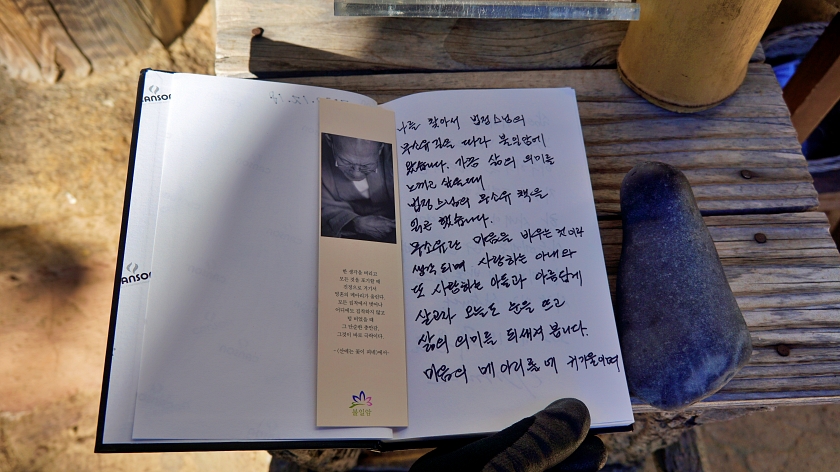 CANSON
CANSON
한 생각을 버리고
모든 것을 포기할 때
진정으로 거기서
영혼의 메아리가 울린다.
모든 집착에서 벗어나
어디에도 집착하지 않고
텅 비었을 때
그 단순한 충만감,
그것이 바로 극락이다.
- <산에는 꽃이 피네>에서-
불일암
나를 찾아서 법정스님의
무소유길을 따라 불일암에
왔습니다. 가끔 삶의 의미를
느끼고 싶을때
법정스님의 무소유 책을
읽곤 했습니다.
무소유란 마음을 비우는 것이라
생각되며 사랑하는 아내와
또 사랑하는 아들과 아름답게
살고파 오늘도 눈을 뜨고
삶의 의미를 되새겨 봅니다.
마음의 메아리를 에 귀기울이며